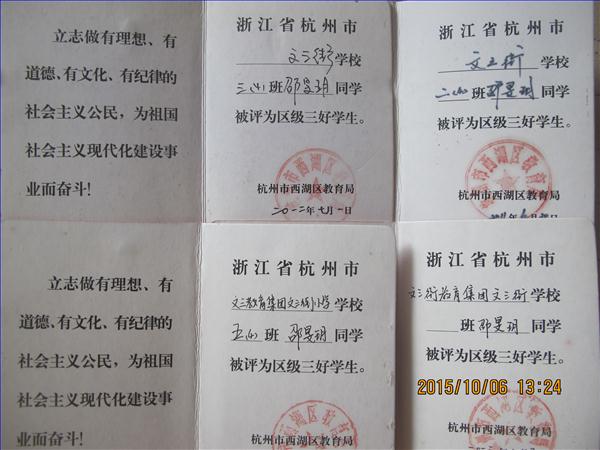 立志做有理想、有
道德、有文化、有纪律的
社会主义公民，为祖国
社会主义现代化建设事
业而奋斗!
浙江省杭州市
文三街学校
三(2)班邵旻玥同学
被评为区级三好学生。
杭州市西湖区教育局
二〇一二年七月一日
浙江省杭州市
文三街学校
班邵旻玥同学
被评为区级三好学生。
杭州市西湖区教育局
立志做有理想、有
道德、有文化、有纪律的
社会主义公民，为祖国
社会主义现代化建设事
业而奋斗!
浙江省杭州市
文三教育集团文三街小学学校
班 邵旻玥同学
被评为区级三好学生。
杭州市西湖区教育局
浙江省杭州市
文三街教育集团文三街学校
班邵旻玥同学
被评为区级三好学生。
2015/10/06 13:24
杭州市西湖区教育局